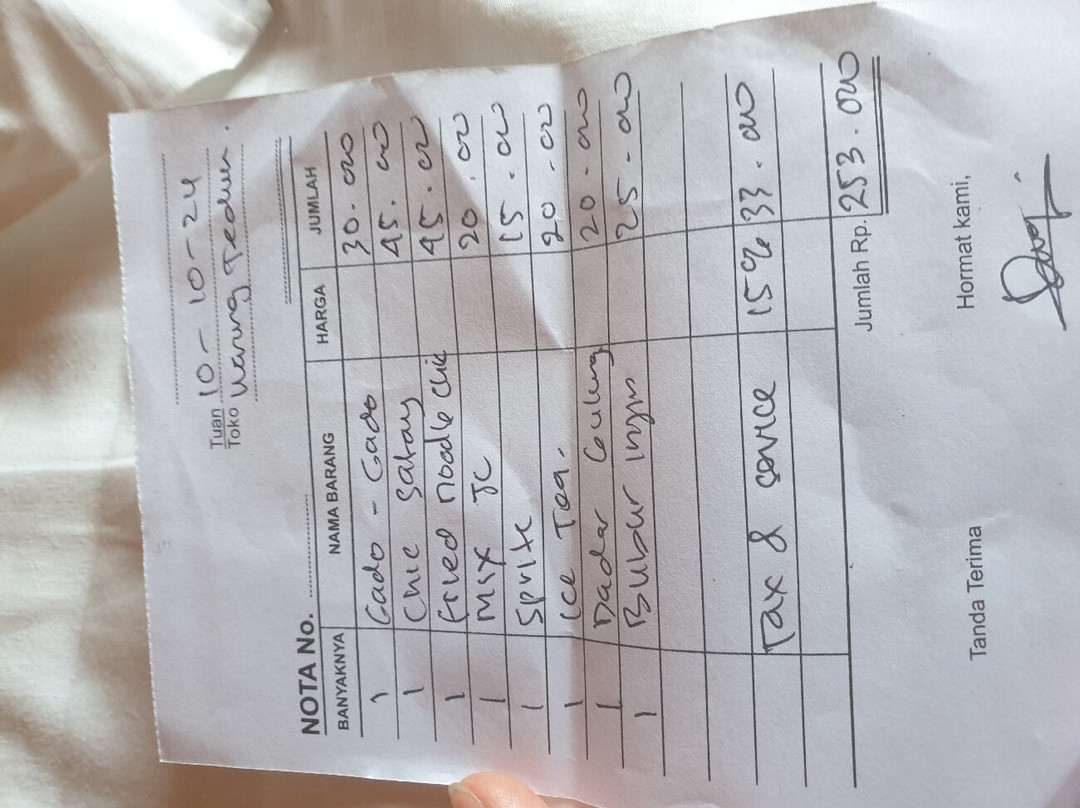 Tuan 10 - 10 - 24
Toko Warung Teduh.
NOTA No.
BANYAKNYA NAMA BARANG HARGA JUMLAH
1 Gado - Gado 30.000
1 Chic Satay 45.000
1 Fried Noodle Chic 45.000
1 Mix JC 20.000
1 Sprite 15.000
1 Ice Tea. 20.000
1 Dadar Gulung 20.000
1 Bubur Injin 25.000
Tax & Service 15% 33.000
Jumlah Rp. 253.000
Tanda Terima Hormat kami,